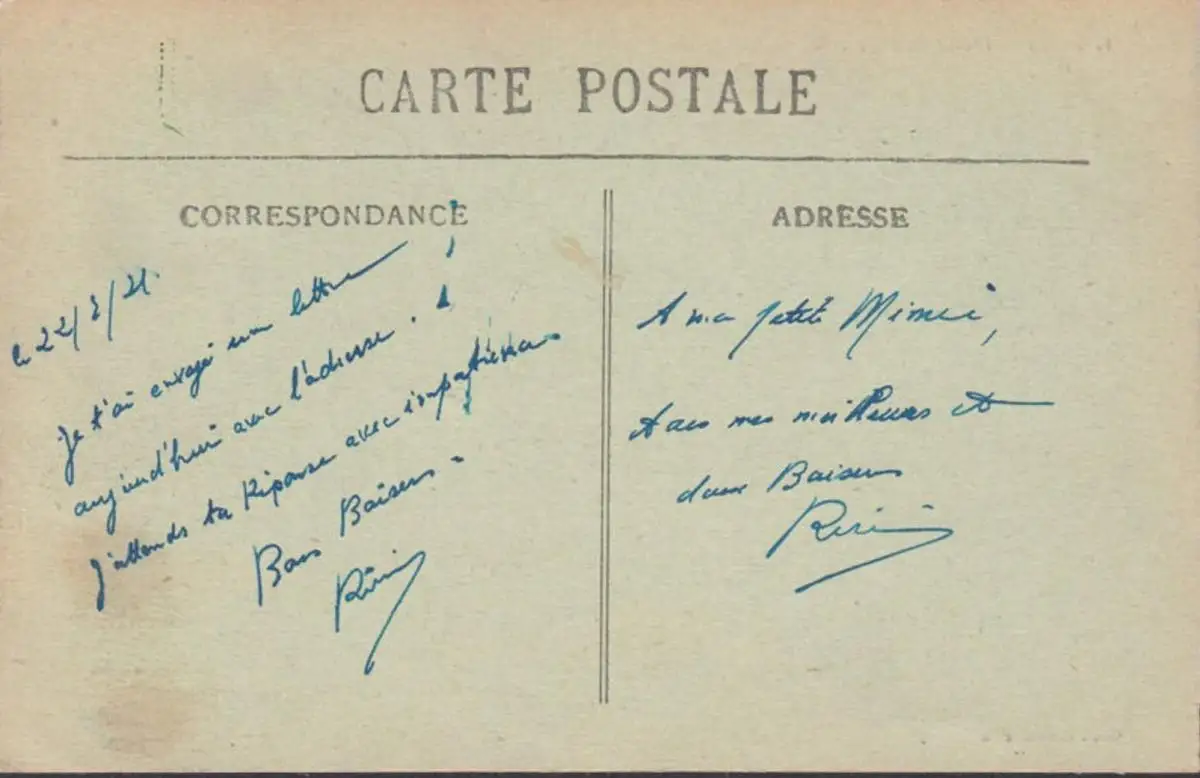 CARTE POSTALE
CORRESPONDANCE
le 22/3/21.
Je t'ai envoyé une lettre
aujourd'hui avec l'adresse.
J'attends ta Réponse avec impatience
Bons Baisers.
Riri
ADRESSE
A ma petite Mimi,
Avec mes meilleurs et
doux Baisers
Riri